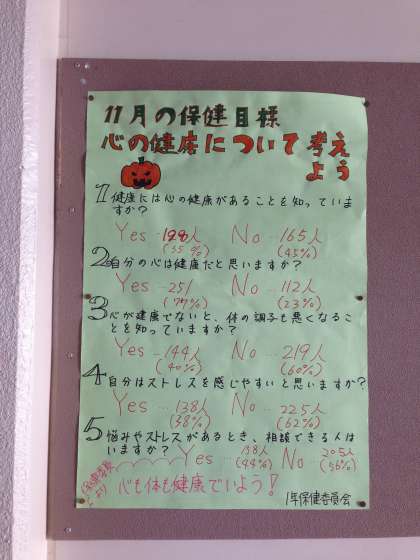 11月の保健目標
心の健康について考え
よう
1 健康には心の健康があることを知っていま
すか?
Yes…198人 No…165人
(55%) (45%)
2 自分の心は健康だと思いますか?
Yes…251 No…112人
(77%) (23%)
3 心が健康でないと、体の調子も悪くなるこ
とを知っていますか?
Yes…144人 No…219人
(40%) (60%)
4 自分はストレスを感じやすいと思いますか?
Yes…138人 No…225人
(38%) (62%)
5 悩みやストレスがあるとき、相談できる人は
いますか? Yes…158人 No…205人
(44%) (56%)
保健委員
より
心も体も健康でいよう!
1年保健委員会